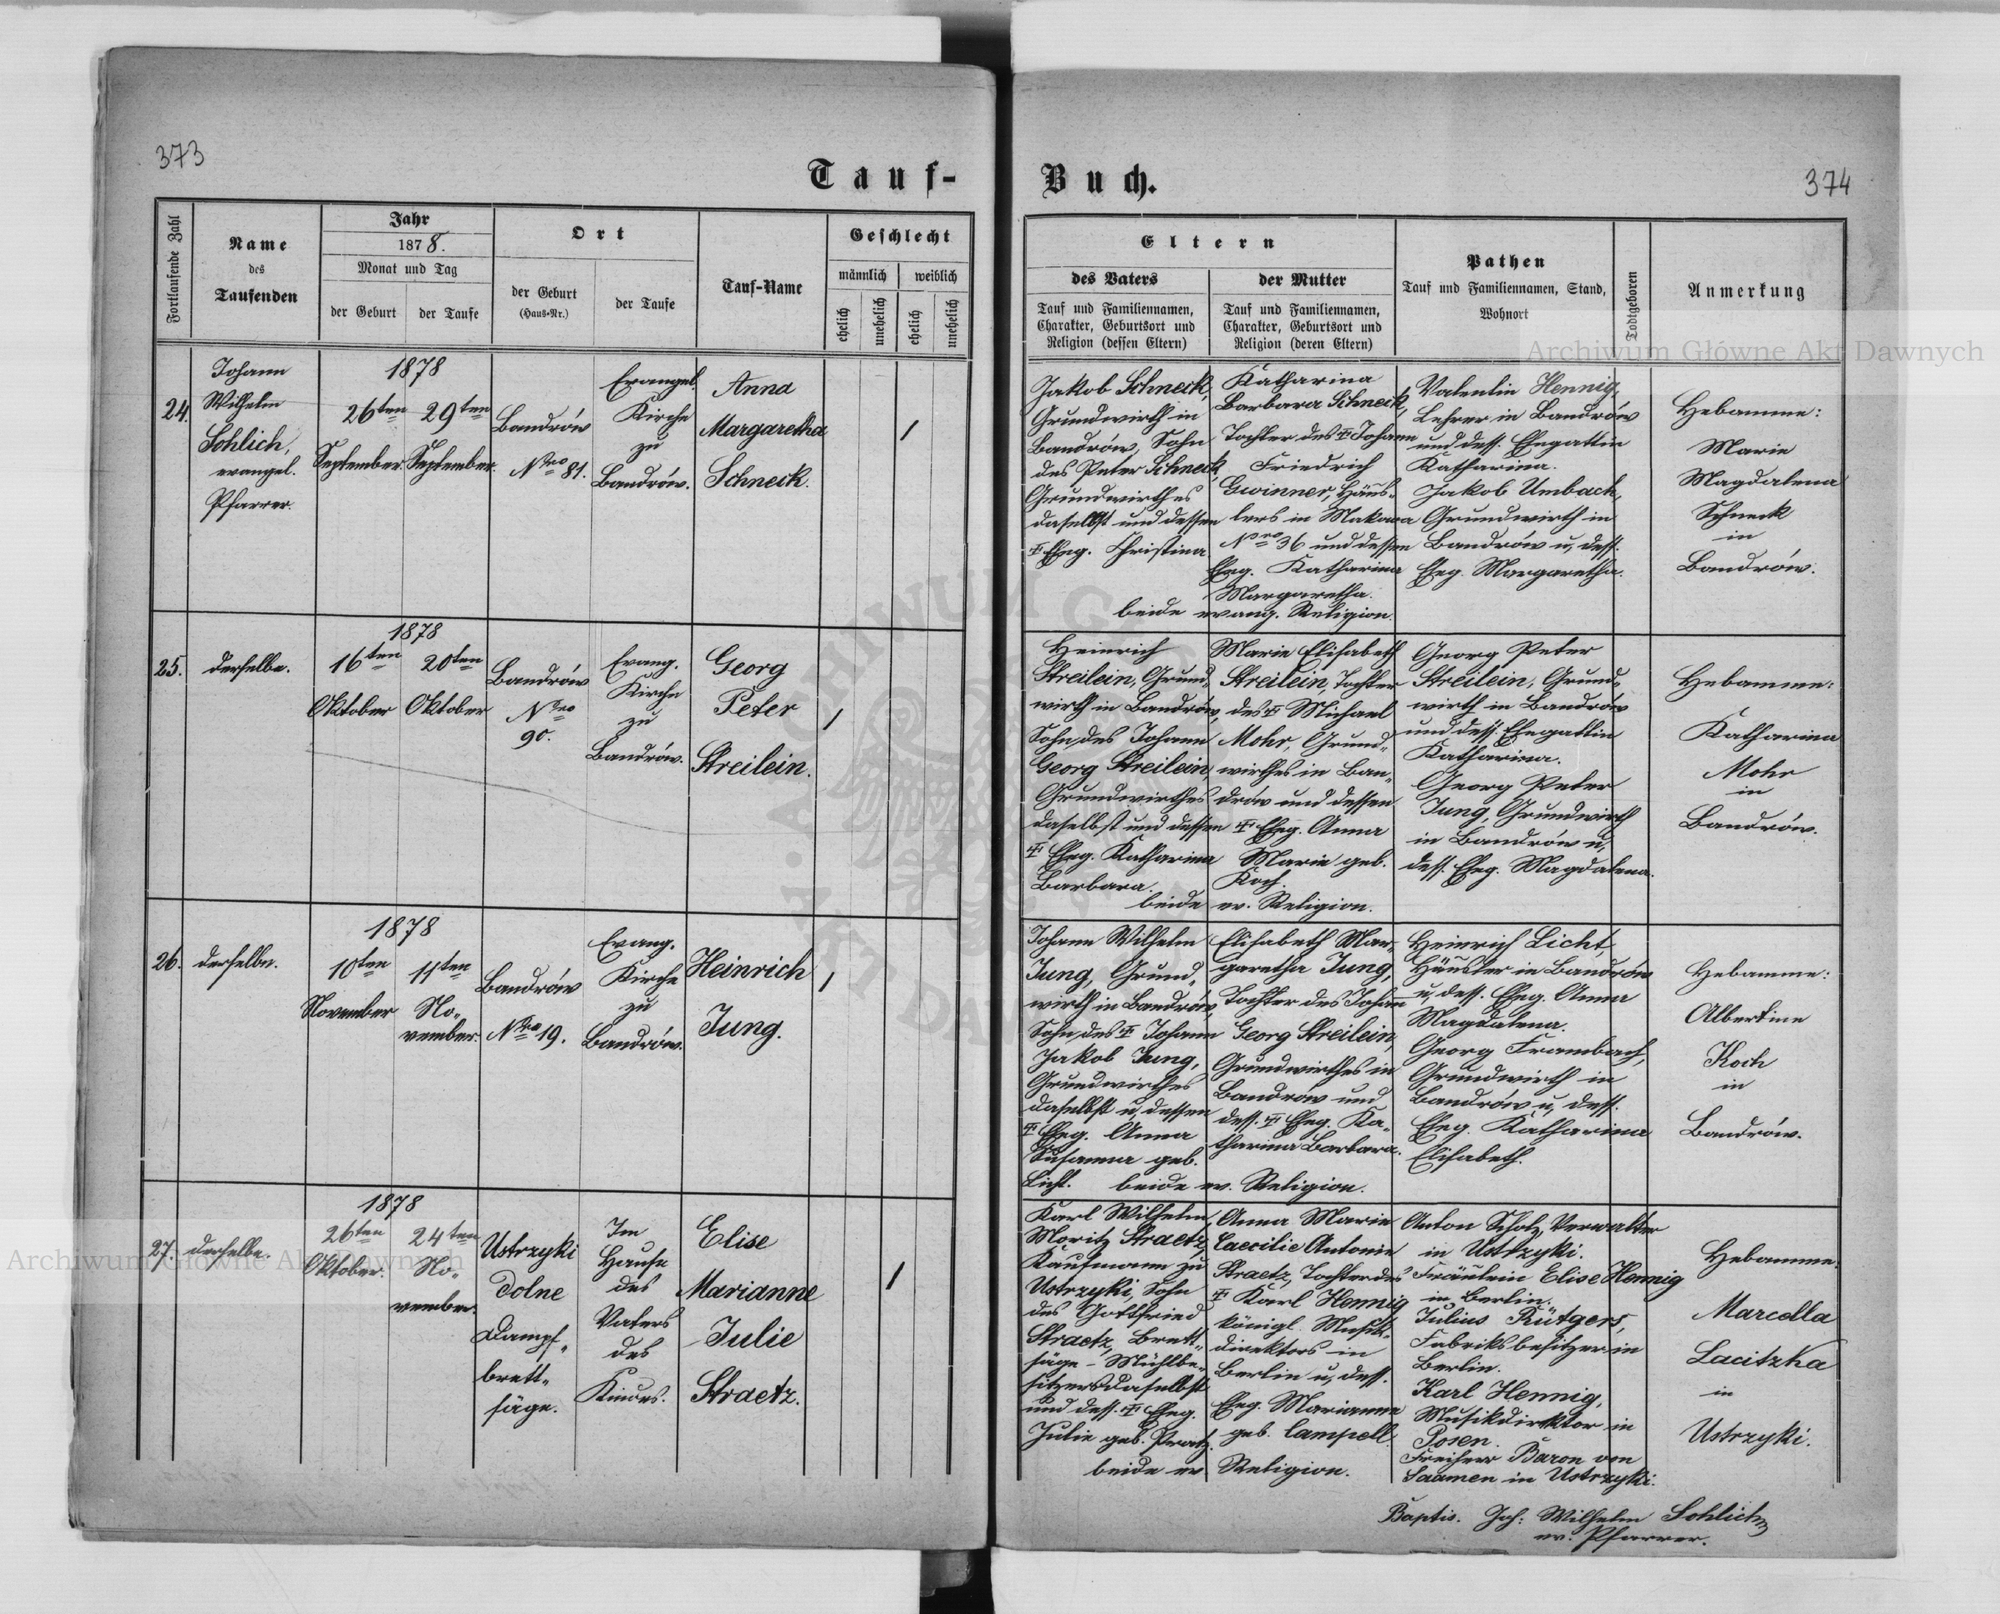 373
Tauf-
Fortlaufende Zahl
Name
des
Taufenden
Jahr
1878.
Monat und Tag
der Geburt
der Taufe
Ort
der Geburt
(Haus-Nr.)
der Taufe
Tauf-Name
Geschlecht
männlich
weiblich
ehelich
unehelich
ehelich
unehelich
24.
Johann
Wilhelm
Sohlich,
evangel.
Pfarrer.
1878
26ten
September.
29ten
September.
Bandrów
Nro 81.
Evangel.
Kirche
zu
Bandrów.
Anna
Margaretha
Schneck.
/
25.
derselbe.
1878
16ten
Oktober
20ten
Oktober
Bandrów
Nro
90.
Evang.
Kirche
zu
Bandrów.
Georg
Peter
Streilein.
/
26.
derselbe.
1878
10ten
November
11ten
No-
vember.
Bandrów
Nro 19.
Evang.
Kirche
zu
Bandrów.
Heinrich
Jung.
/
27.
derselbe.
1878
26ten
Oktober.
24ten
No-
vember.
Ustrzyki
dolne
Dampf-
brett-
säge.
Im
Hause
des
Vaters
des
Kindes.
Elise
Marianne
Julie
Straetz.
/
Buch.
374
Eltern
des Vaters
Tauf und Familiennamen,
Charakter, Geburtsort und
Religion (dessen Eltern)
der Mutter
Tauf und Familiennamen,
Charakter, Geburtsort und
Religion (deren Eltern)
Pathen
Tauf und Familiennamen, Stand,
Wohnort
Todtgeboren
Anmerkung
Jakob Schneck,
Grundwirth in
Bandrów, Sohn
des Peter Schneck,
Grundwirthes
daselbst und dessen
Eheg. Christina
Katharina
Barbara Schneck,
Tochter des Johann
Friedrich
Gwinner, Häus-
lers in Makowa
Nro 36 und dessen
Eheg. Katharina
Margaretha.
beide evang. Religion.
Valentin Hennig,
Lehrer in Bandrów
und dess. Ehegattin
Katharina.
Jakob Umbach,
Grundwirth in
Bandrów u. dess.
Eheg. Margaretha.
Hebamme:
Marie
Magdalena
Schneck
in
Bandrów.
Heinrich
Streilein, Grund-
wirth in Bandrów,
Sohn des Johann
Georg Streilein,
Grundwirthes
daselbst und dessen
Eheg. Katharina
Barbara.
Marie Elisabeth
Streilein, Tochter
des Michael
Mohr, Grund-
wirthes in Ban-
drów und dessen
Eheg. Anna
Marie geb.
Koch.
beide ev. Religion.
Georg Peter
Streilein, Grund-
wirth in Bandrów
und dess. Ehegattin
Katharina.
Georg Peter
Jung, Grundwirth
in Bandrów u.
dess. Eheg. Magdalena.
Hebamme:
Katharina
Mohr
in
Bandrów.
Johann Wilhelm
Jung, Grund-
wirth in Bandrów,
Sohn des Johann
Jakob Jung,
Grundwirthes
daselbst u. dessen
Eheg. Anna
Susanna geb.
Licht.
Elisabeth Mar-
garetha Jung,
Tochter des Johann
Georg Streilein
Grundwirthes in
Bandrów und
dess. Eheg. Ka-
tharina Barbara.
beide ev. Religion.
Heinrich Licht,
Häusler in Bandrów
u. dess. Eheg. Anna
Magdalena.
Georg Frambach,
Grundwirth in
Bandrów u. dess.
Eheg. Katharina
Elisabeth.
Hebamme:
Albertine
Koch
in
Bandrów.
Karl Wilhelm
Moritz Straetz,
Kaufmann zu
Ustrzyki, Sohn
des Gottfried
Straetz, Brett-
säge-Mühlbe-
sitzers daselbst
und dess. Eheg.
Julie geb.
Anna Marie
Caecilie Antonie
Straetz, Tochter des
Karl Hennig
königl. Musik-
direktors in
Berlin u. dess.
Eheg. Marianne
geb.
beide ev. Religion.
Anton Scholz, Verwalter
in Ustrzyki.
Fräulein Elise Hennig
in Berlin.
Julius Rütgers,
Fabriksbesitzer in
Berlin.
Karl Hennig,
Musikdirektor in
Posen.
Freiherr Baron von
Saamen in Ustrzyki.
Hebamme:
Marcella
Lacitzka
in
Ustrzyki.
Baptis. Joh: Wilhelm Sohlich
ev. Pfarrer.
Archiwum Główne Akt Dawnych
Archiwum Główne Akt Dawnych